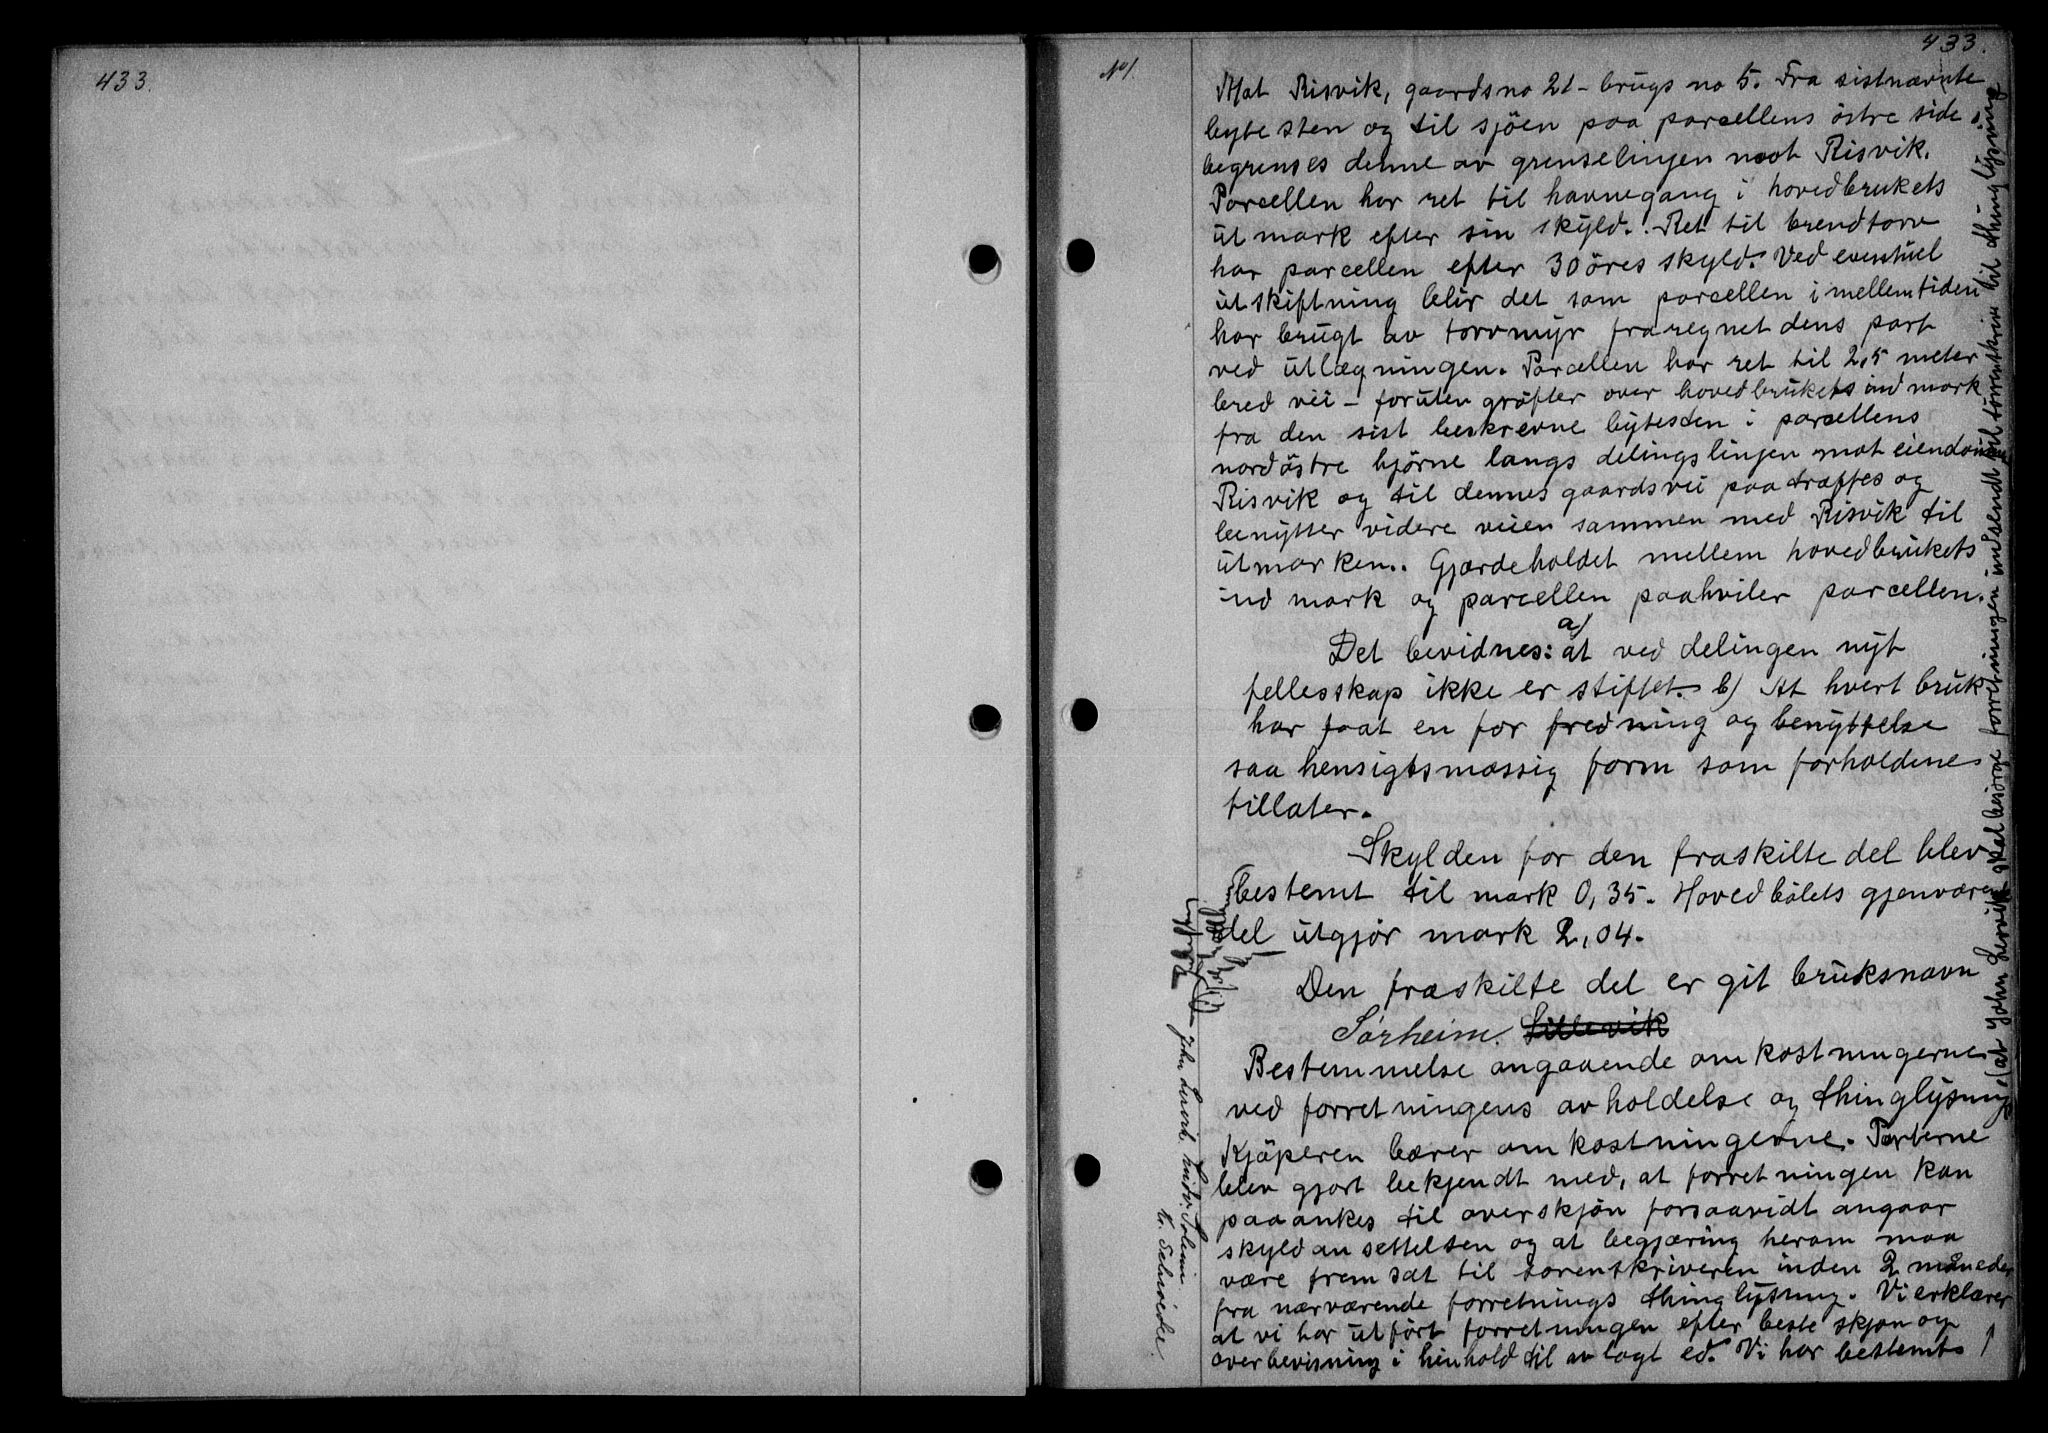 433.
433.
No 1.
Mat Risvik, gaardsno 21 - brugs no 5. Fra sistnævnte
byte sten og til sjöen paa parcellens östre side
begrenses denne av grenselinjen moot Risvik.
Parcellen har ret til havnegang i hovedbrukets
utmark efter sin skyld. Ret til brendtorv
har parcellen efter 30 öres skyld. Ved eventuel
utskiftning blir det som parcellen i mellemtiden
har brugt av torvmyr fraregnet dens part
ved utlægningen. Parcellen har ret til 2,5 meter
bred vei - foruten gröfter over hovedbrukets indmark
fra den sist beskrevne bytesten i parcellens
nordöstre hjörne langs delingslinjen mot eiendom
Risvik og til dennes gaardsvei paatræffes og
benytter videre veien sammen med Risvik til
utmarken. Gjærdeholdet mellem hovedbrukets
ind mark og parcellen paahviler parcellen.
Det bevidnes: a) at ved delingen nyt
fellesskap ikke er stiftet. b) At hvert bruk
har faat en for fredning og benyttelse
saa hensigtsmæssig form som forholdene
tillater.
Skylden for den fraskilte del blev
bestemt til mark 0,35. Hovedbölets gjenværen
del utgjör mark 2,04.
Den fraskilte del er git bruksnavn
Sörheim. Lillevik
Bestemmelse angaaende omkostningerne
ved forretningens avholdelse og thinglysning
Kjöperen bærer omkostningerne. Parterne
blev gjort bekjendt med, at forretningen kan
paaankes til overskjön forsaavidt angaar
skyldansettelsen og at begjæring herom maa
være fremsat til sorenskriveren inden 2 måneder
fra nærværende forretnings thinglysning. Vi erklærer
at vi har utfört forretningen efter beste skjön og
overbevisning i henhold til avlagt ed. Vi har bestemt
at John Lervik skal besörge forretningen insendt til sorenskriver til thinglysning
John Lervik. Kr. Schevik